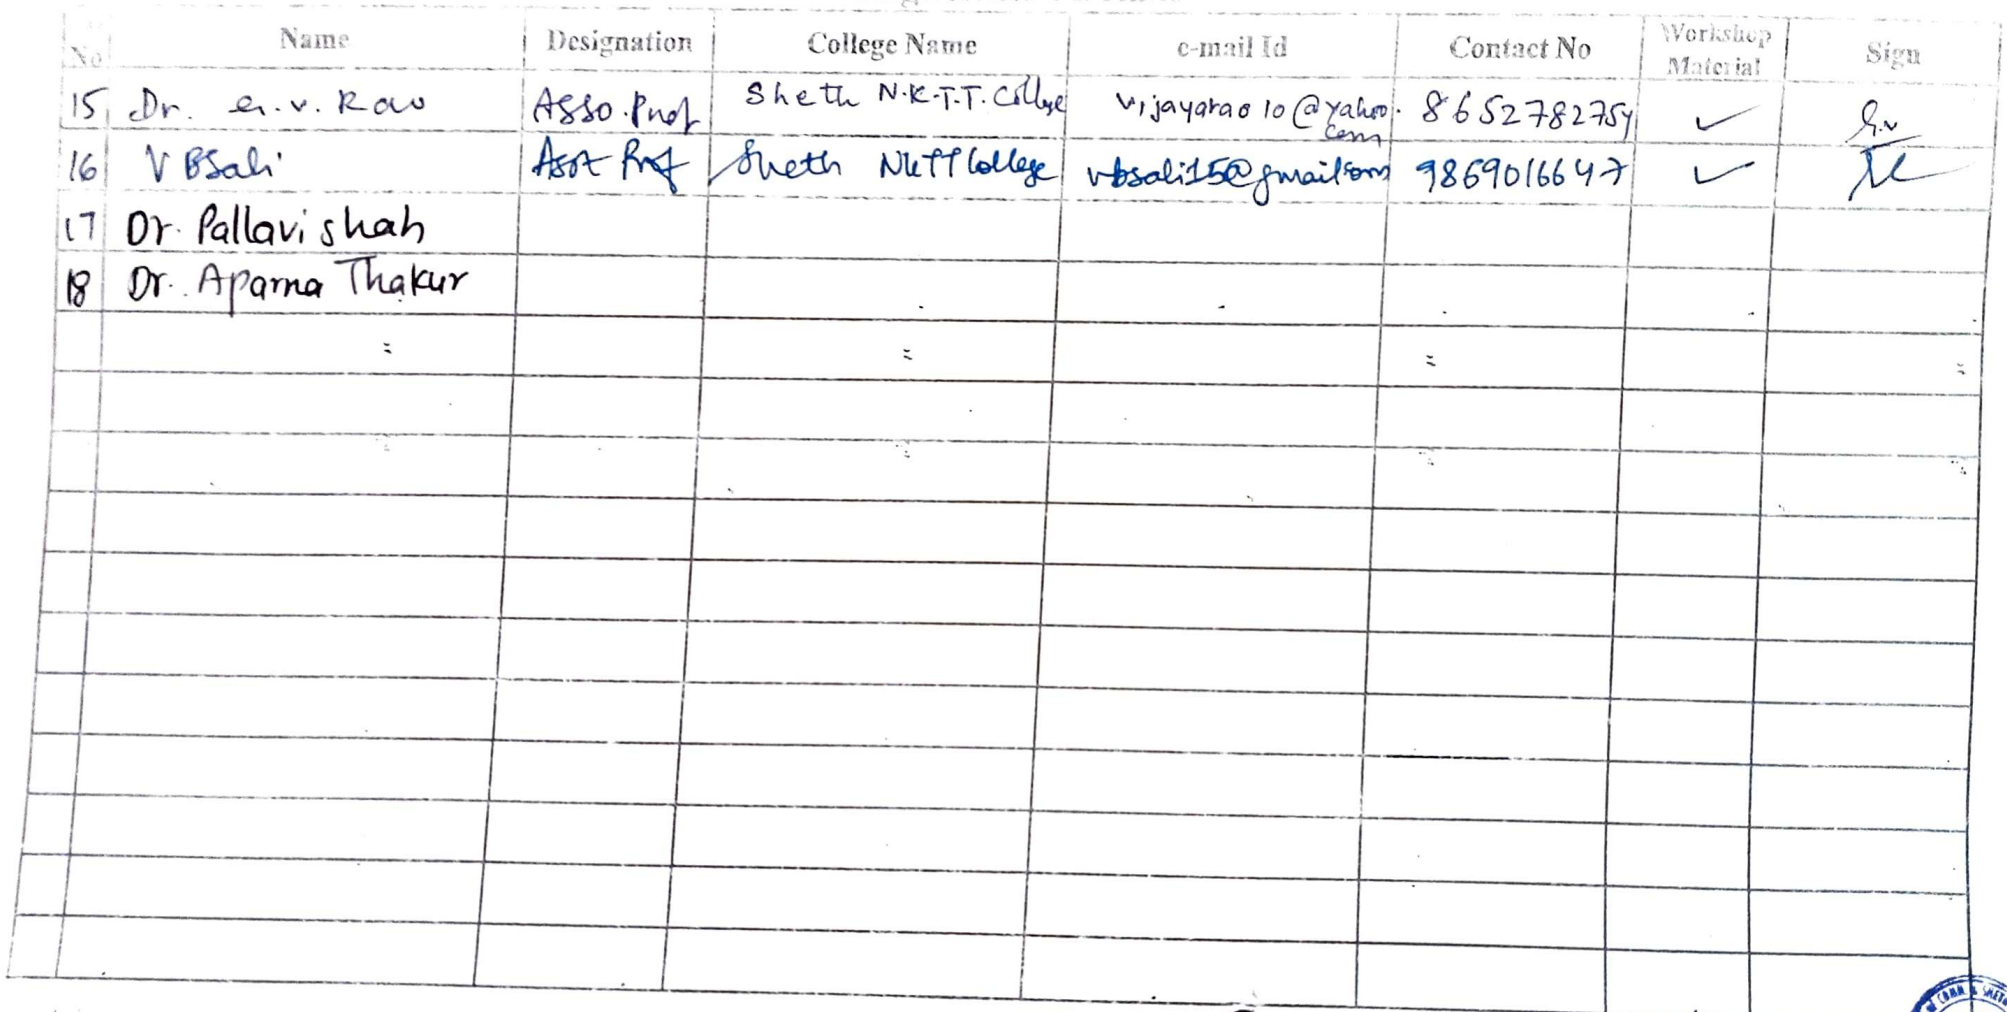 No Name Designation College Name e-mail Id Contact No Workshop Material Sign
15 Dr. G.V. Rao Asso. Prof Sheth N.K.T.T. College vijayarao10@yahoo.com 8652782754 ✓
16 V B Sali Asst Prof Sheth NKTT College vbsali15@gmail.com 9869016647 ✓
17 Dr. Pallavi shah
18 Dr. Aparna Thakur
COMM. & SHETH